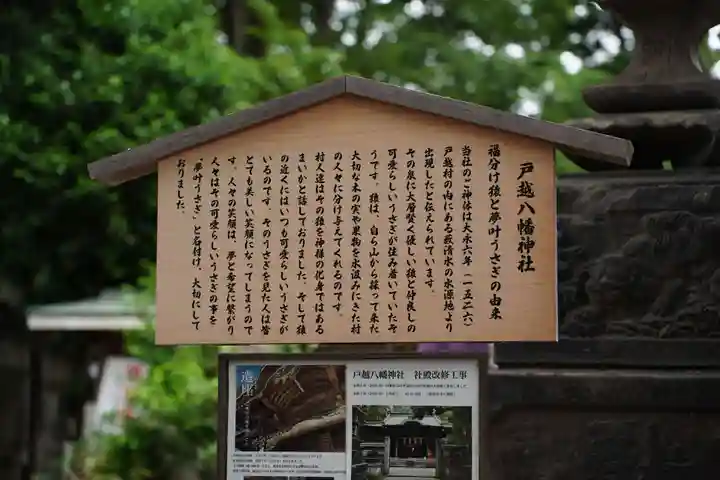 戸越八幡神社
福分け猿と夢叶うさぎの由来
当社のご神体は大永六年(一五二六)
戸越村の内にある藪清水の水源地より
出現したと伝えられています。
その泉に大層賢く優しい猿と仲良しの
可愛らしいうさぎが住み着いていたそ
うです。猿は、自ら山から採って来た
大切な木の実や果物を水汲みにきた村
の人々に分け与えてくれるのです。
村人達はその猿を神様の化身ではある
まいかと話しておりました。そして猿
の近くにはいつも可愛らしいうさぎが
いるのです。そのうさぎを見た人は皆
とても美しい笑顔になってしまうので
す。人々の笑顔は、夢と希望に繋がり
人々はその可愛らしいうさぎの事を
「夢叶うさぎ」と名付け、大切にして
おりました。
造座
戸越八幡神社 社殿改修工事